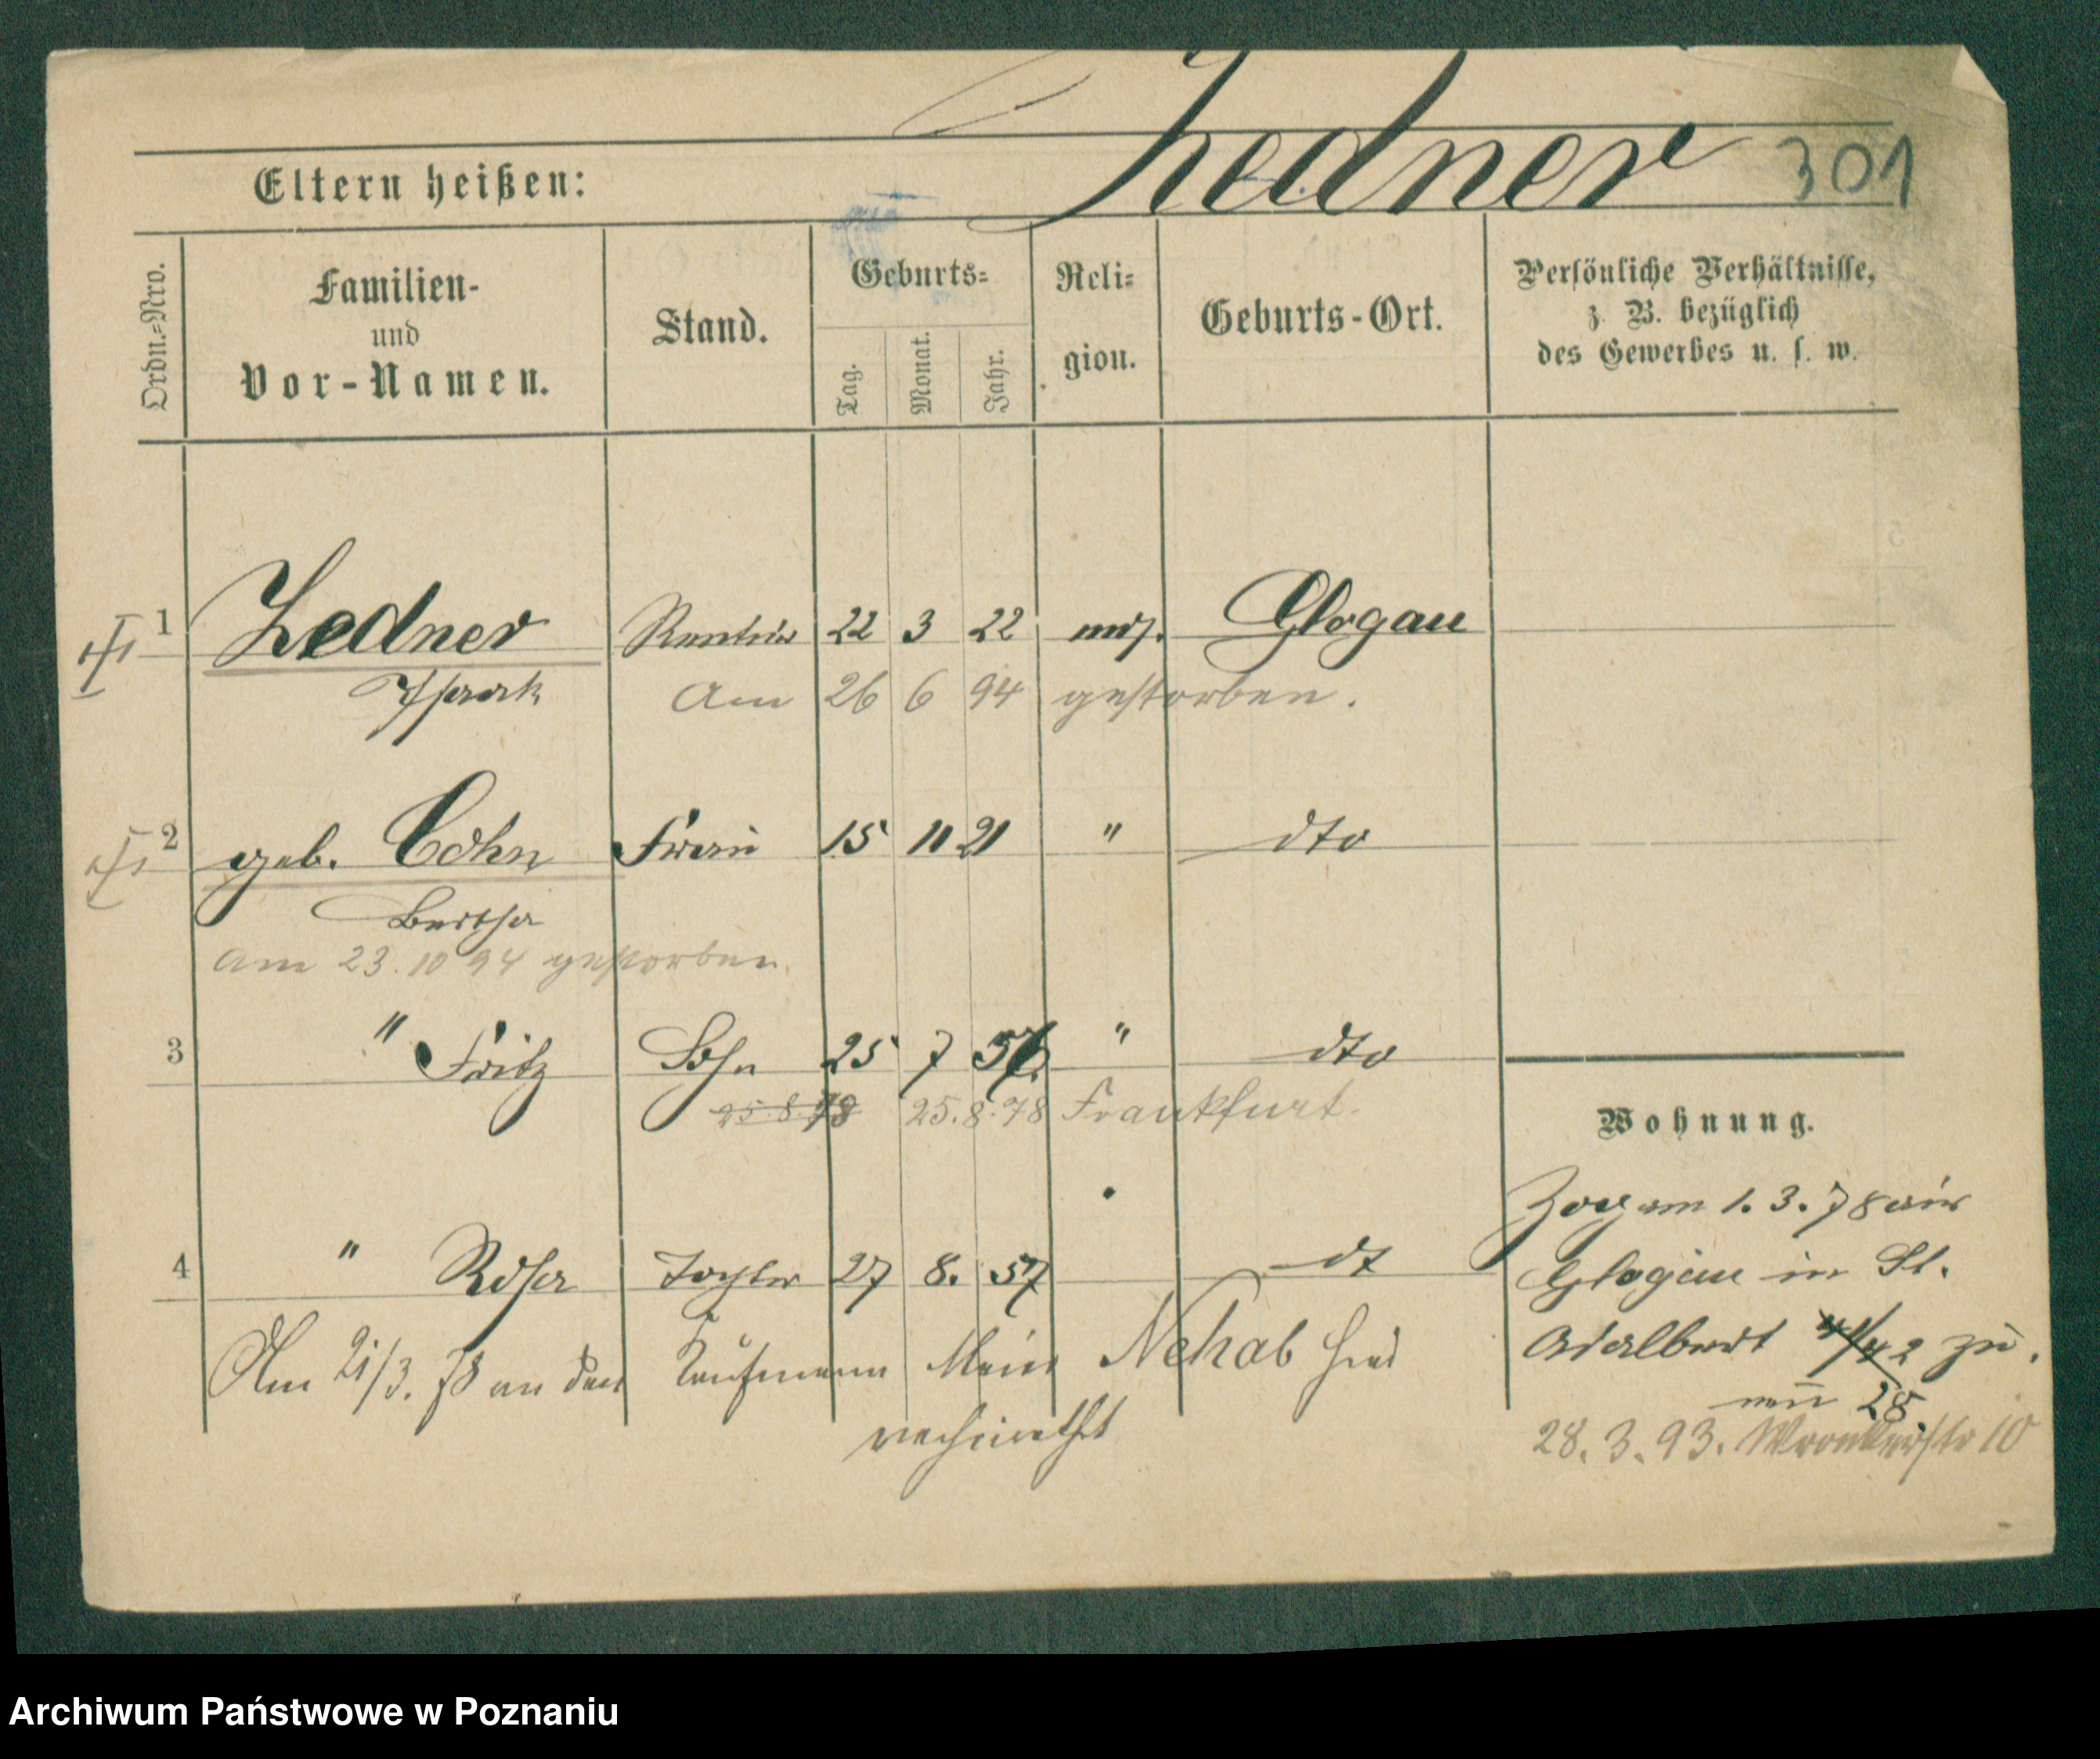 Zedner 301
Eltern heißen:
Ordn.=Nro.
Familien-
und
Vor-Namen.
Stand.
Geburts=
Tag.
Monat.
Jahr.
Reli=
gion.
Geburts-Ort.
Persönliche Verhältnisse,
z. B. bezüglich
des Gewerbes u. s. w.
1 Zedner Rentier 22 3 22 mos. Glogau
Isaak Am 26 6 94 gestorben.
2 geb. Cohn Frau 15 11 21 " dto
Bertha
am 23.10 94 gestorben
3 " Fritz Sohn 25 7 " dto
25.8.78 25.8.78 Frankfurt.
Wohnung.
Zog am 1. 3. 78 aus
4 " Rosa Tochter 27 8. 57 dt
Glogau in St.
Adalbert 42 zu.
Am 21/3. 78 an den Kaufmann Nehab hier
nun 28
verheirathet
28. 3. 93. Wronkerstr 10
Archiwum Państwowe w Poznaniu